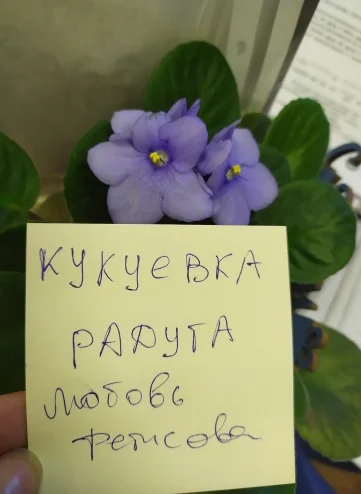 КУКУЕВКА
РАДУГА
Любовь
Фетисова